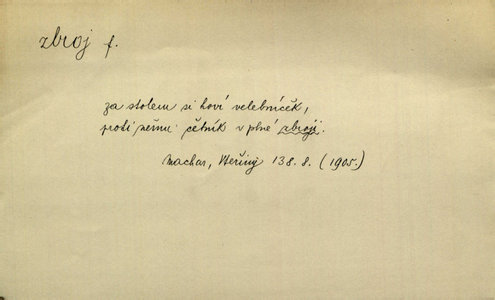 zbroj f.
za stolem si hoví velebníček,
proti němu četník v plné zbroji.
Machar, Veřiny 138. 8. (1905.)